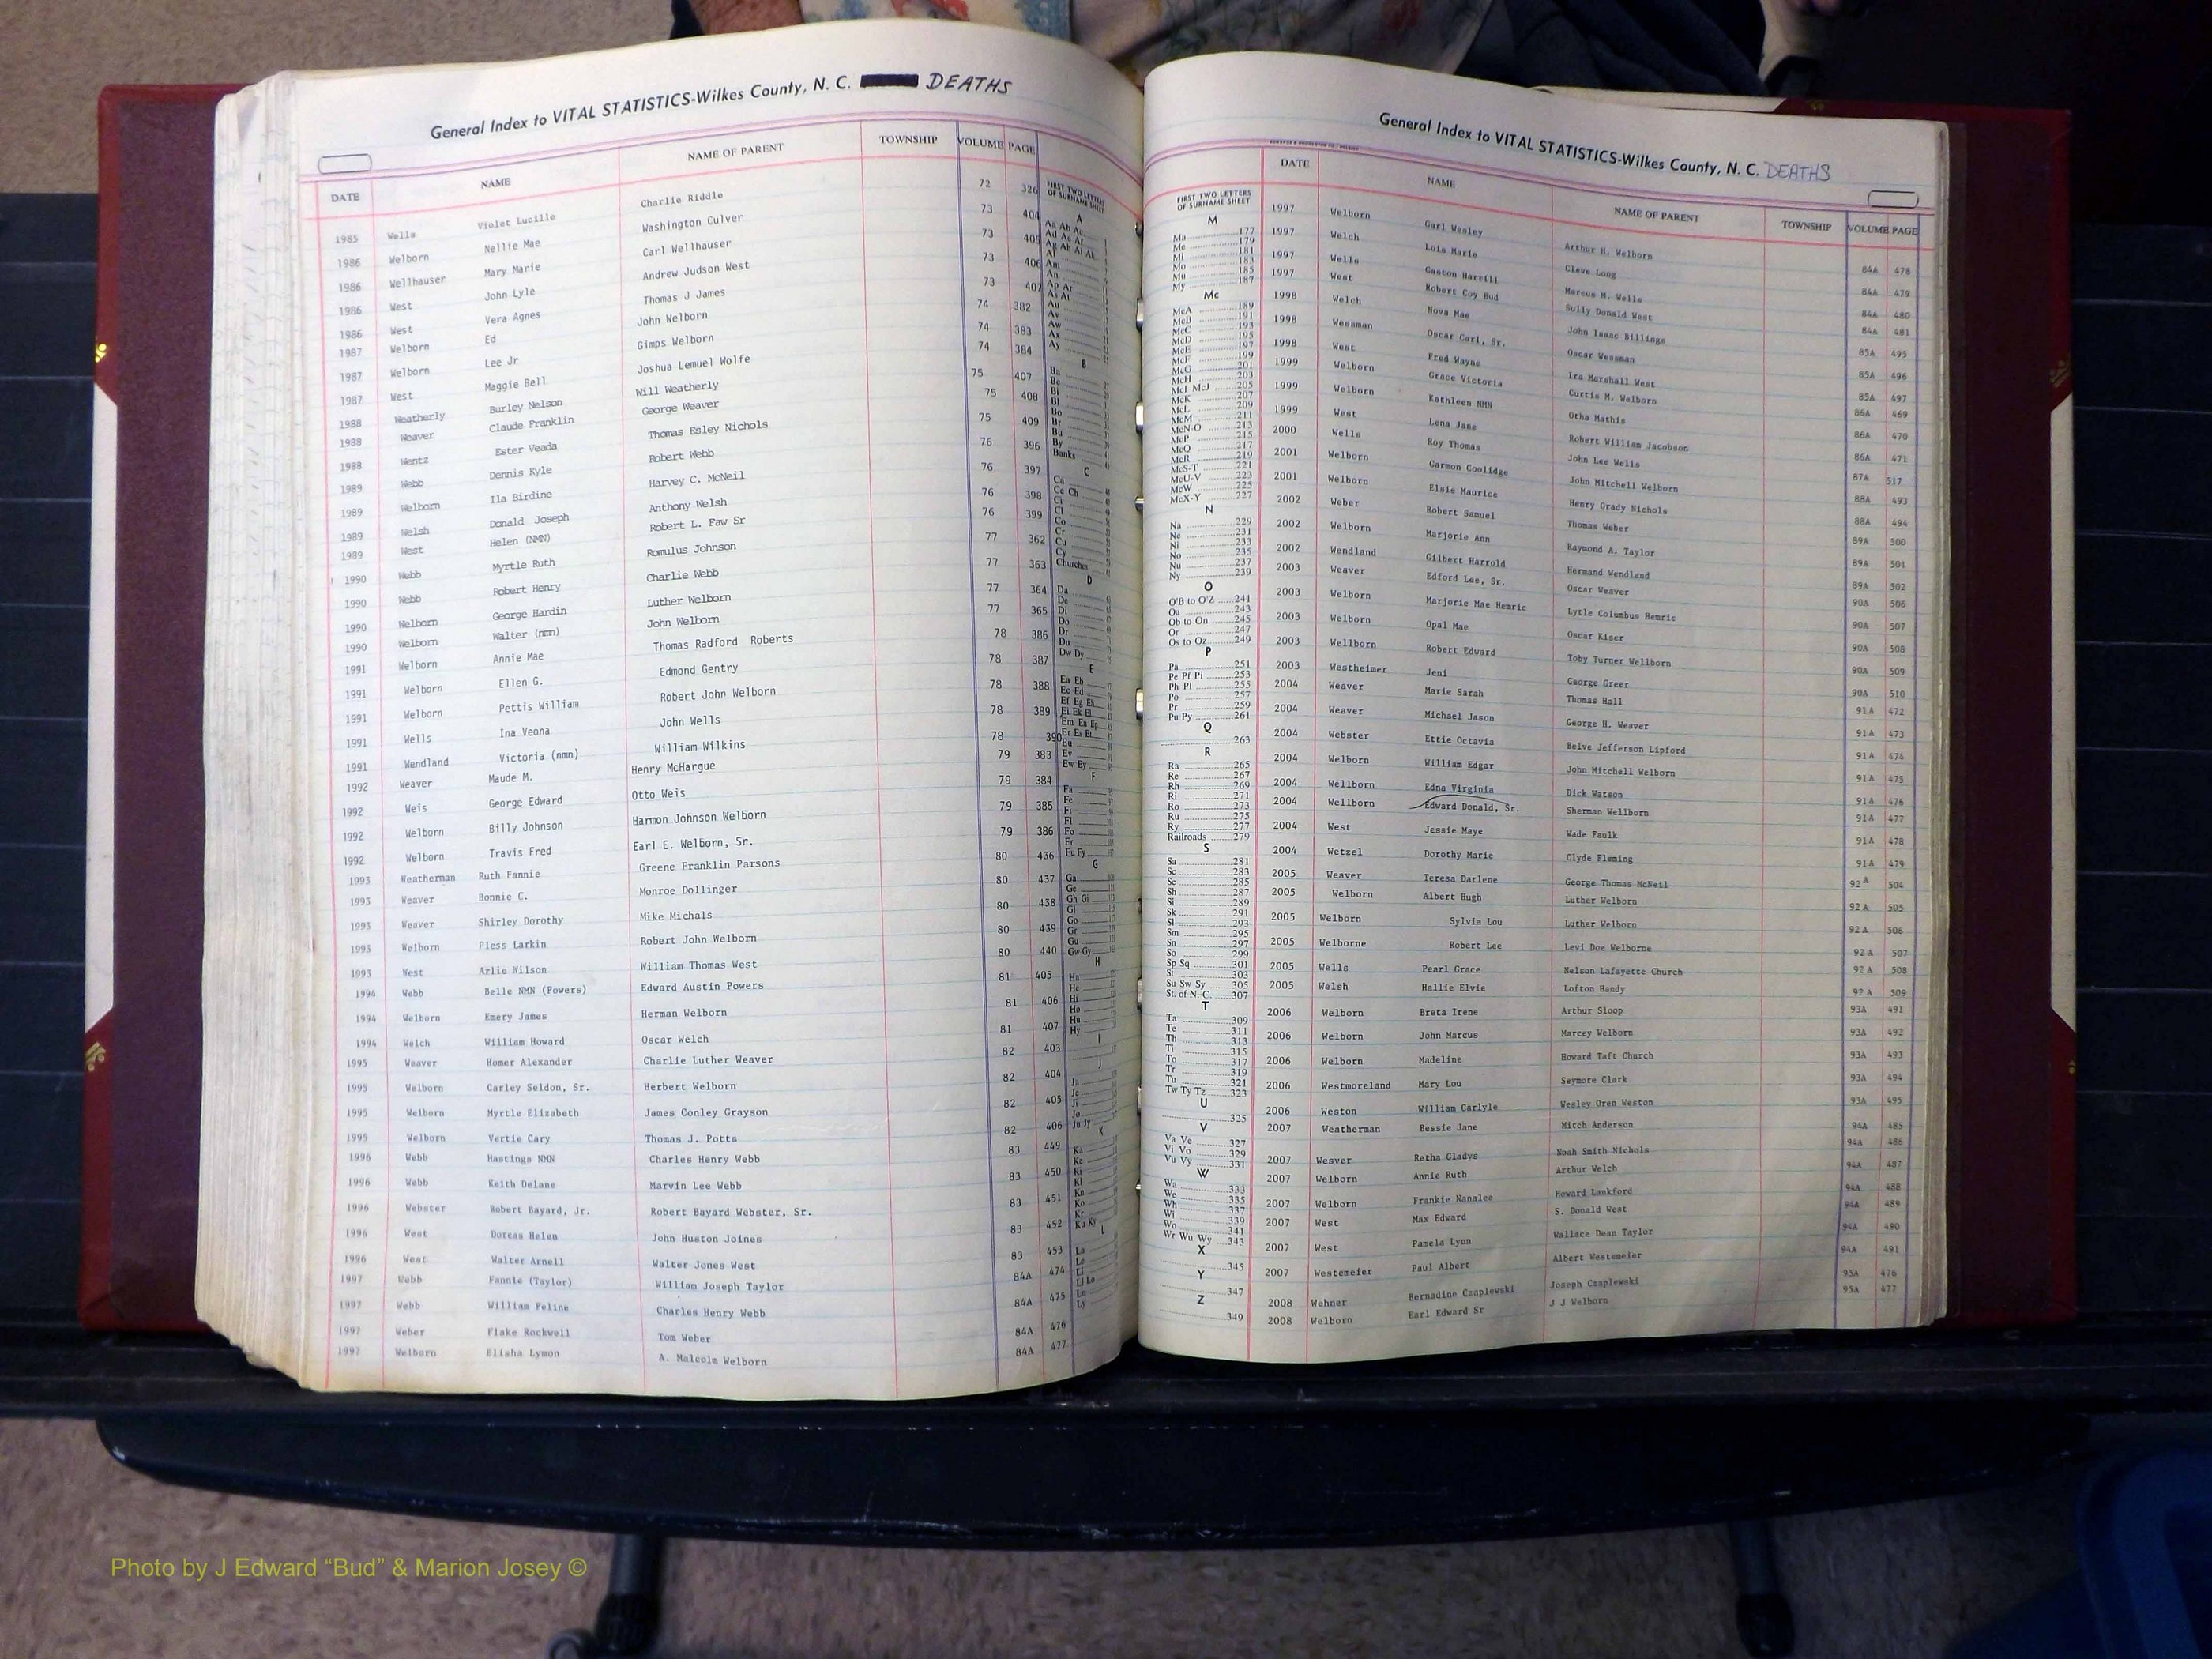 General Index to VITAL STATISTICS-Wilkes County, N. C. DEATHS
DATE NAME NAME OF PARENT TOWNSHIP VOLUME PAGE
1985 Wells Violet Lucille Charlie Riddle 72 326
1986 Welborn Nellie Mae Washington Culver 73 404
1986 Wellhauser Mary Marie Carl Wellhauser 73 405
1986 West John Lyle Andrew Judson West 73 406
1986 West Vera Agnes Thomas J James 73 407
1987 Welborn Ed John Welborn 74 382
1987 Welborn Lee Jr Gimps Welborn 74 383
1987 West Maggie Bell Joshua Lemuel Wolfe 74 384
1988 Weatherly Burley Nelson Will Weatherly 75 407
1988 Weaver Claude Franklin George Weaver 75 408
1988 Wentz Ester Veada Thomas Esley Nichols 75 409
1989 Webb Dennis Kyle Robert Webb 76 396
1989 Welborn Ila Birdine Harvey C. McNeil 76 397
1989 Welsh Donald Joseph Anthony Welsh 76 398
1989 West Helen (NMN) Robert L. Faw Sr 76 399
1990 Webb Myrtle Ruth Romulus Johnson 77 362
1990 Webb Robert Henry Charlie Webb 77 363
1990 Welborn George Hardin Luther Welborn 77 364
1990 Welborn Walter (nmn) John Welborn 77 365
1991 Welborn Annie Mae Thomas Radford Roberts 78 386
1991 Welborn Ellen G. Edmond Gentry 78 387
1991 Welborn Pettis William Robert John Welborn 78 388
1991 Wells Ina Veona John Wells 78 389
1991 Wendland Victoria (nmn) William Wilkins 78 390
1992 Weaver Maude M. Henry McHargue 79 383
1992 Weis George Edward Otto Weis 79 384
1992 Welborn Billy Johnson Harmon Johnson Welborn 79 385
1992 Welborn Travis Fred Earl E. Welborn, Sr. 79 386
1993 Weatherman Ruth Fannie Greene Franklin Parsons 80 436
1993 Weaver Bonnie C. Monroe Dollinger 80 437
1993 Weaver Shirley Dorothy Mike Michals 80 438
1993 Welborn Pless Larkin Robert John Welborn 80 439
1993 West Arlie Wilson William Thomas West 80 440
1994 Webb Belle NMN (Powers) Edward Austin Powers 81 405
1994 Welborn Emery James Herman Welborn 81 406
1994 Welch William Howard Oscar Welch 81 407
1995 Weaver Homer Alexander Charlie Luther Weaver 82 403
1995 Welborn Carley Seldon, Sr. Herbert Welborn 82 404
1995 Welborn Myrtle Elizabeth James Conley Grayson 82 405
1995 Welborn Vertie Cary Thomas J. Potts 82 406
1996 Webb Hastings NMN Charles Henry Webb 83 449
1996 Webb Keith Delane Marvin Lee Webb 83 450
1996 Webster Robert Bayard, Jr. Robert Bayard Webster, Sr. 83 451
1996 West Dorcas Helen John Huston Joines 83 452
1996 West Walter Arnell Walter Jones West 83 453
1997 Webb Fannie (Taylor) William Joseph Taylor 84A 474
1997 Webb William Feline Charles Henry Webb 84A 475
1997 Weber Flake Rockwell Tom Weber 84A 476
1997 Welborn Elisha Lymon A. Malcolm Welborn 84A 477
FIRST TWO LETTERS
OF SURNAME SHEET
A
Aa Ab Ac
Ad Ae Af
Ag Ah Ai Ak
Al
Am
An
Ap Ar
As At
Au
Av
Aw
Ax
Ay
B
Ba
Be
Bi
Bl
Bo
Br
Bu
By
Banks
C
Ca
Ce Ch
Ci
Cl
Co
Cr
Cu
Cy
Churches
D
Da
De
Di
Do
Dr
Du
Dw Dy
E
Ea Eb
Ec Ed
Ef Eg Eh
Ei Ek El
Em En Ep
Er Es Et
Eu
Ev
Ew Ey
F
Fa
Fe
Fi
Fl
Fo
Fr
Fu Fy
G
Ga
Ge
Gh Gi
Gl
Go
Gr
Gu
Gw Gy
H
Ha
He
Hi
Ho
Hu
Hy
I
J
Ja
Je
Ji
Jo
Ju Jy
K
Ka
Ke
Ki
Kl
Kn
Ko
Kr
Ku Ky
L
La
Le
Li
Ll Lo
Lu
Ly
General Index to VITAL STATISTICS-Wilkes County, N. C. DEATHS
FIRST TWO LETTERS
OF SURNAME SHEET
M
Ma 177
Me 179
Mi 181
Mo 183
Mu 185
My 187
Mc
McA 189
McB 191
McC 193
McD 195
McE 197
McF 199
McG 201
McH 203
McI McJ 205
McK 207
McL 209
McM 211
McN-O 213
McP 215
McQ 217
McR 219
McS-T 221
McU-V 223
McW 225
McX-Y 227
N
Na 229
Ne 231
Ni 233
No 235
Nu 237
Ny 239
O
O'B to O'Z 241
Oa 243
Ob to On 245
Or 247
Os to Oz 249
P
Pa 251
Pe Pf Pi 253
Ph Pl 255
Po 257
Pr 259
Pu Py 261
Q
263
R
Ra 265
Re 267
Rh 269
Ri 271
Ro 273
Ru 275
Ry 277
Railroads 279
S
Sa 281
Sc 283
Se 285
Sh 287
Si 289
Sk 291
Sl 293
Sm 295
Sn 297
So 299
Sp Sq 301
St 303
Su Sw Sy 305
St. of N. C. 307
T
Ta 309
Te 311
Th 313
Ti 315
To 317
Tr 319
Tu 321
Tw Ty Tz 323
U
325
V
Va Ve 327
Vi Vo 329
Vu Vy 331
W
Wa 333
We 335
Wh 337
Wi 339
Wo 341
Wr Wu Wy 343
X
345
Y
347
Z
349
DATE NAME NAME OF PARENT TOWNSHIP VOLUME PAGE
1997 Welborn Garl Wesley Arthur H. Welborn 84A 478
1997 Welch Lois Marie Cleve Long 84A 479
1997 Wells Gaston Harrill Marcus M. Wells 84A 480
1997 West Robert Coy Bud Sully Donald West 84A 481
1998 Welch Nova Mae John Isaac Billings 85A 495
1998 Wessman Oscar Carl, Sr. Oscar Wessman 85A 496
1998 West Fred Wayne Ira Marshall West 85A 497
1999 Welborn Grace Victoria Curtis M. Welborn 86A 469
1999 Welborn Kathleen NMN Otha Mathis 86A 470
1999 West Lena Jane Robert William Jacobson 86A 471
2000 Wells Roy Thomas John Lee Wells 87A 517
2001 Welborn Garmon Coolidge John Mitchell Welborn 88A 493
2001 Welborn Elsie Maurice Henry Grady Nichols 88A 494
2002 Weber Robert Samuel Thomas Weber 89A 500
2002 Welborn Marjorie Ann Raymond A. Taylor 89A 501
2002 Wendland Gilbert Harrold Hermand Wendland 89A 502
2003 Weaver Edford Lee, Sr. Oscar Weaver 90A 506
2003 Welborn Marjorie Mae Hemric Lytle Columbus Hemric 90A 507
2003 Welborn Opal Mae Oscar Kiser 90A 508
2003 Wellborn Robert Edward Toby Turner Wellborn 90A 509
2003 Westheimer Jeni George Greer 90A 510
2004 Weaver Marie Sarah Thomas Hall 91A 472
2004 Weaver Michael Jason George H. Weaver 91A 473
2004 Webster Ettie Octavia Belve Jefferson Lipford 91A 474
2004 Welborn William Edgar John Mitchell Welborn 91A 475
2004 Wellborn Edna Virginia Dick Watson 91A 476
2004 Wellborn Edward Donald, Sr. Sherman Wellborn 91A 477
2004 West Jessie Maye Wade Faulk 91A 478
2004 Wetzel Dorothy Marie Clyde Fleming 91A 479
2005 Weaver Teresa Darlene George Thomas McNeil 92A 504
2005 Welborn Albert Hugh Luther Welborn 92A 505
2005 Welborn Sylvia Lou Luther Welborn 92A 506
2005 Welborne Robert Lee Levi Doe Welborne 92A 507
2005 Wells Pearl Grace Nelson Lafayette Church 92A 508
2005 Welsh Hallie Elvie Lofton Handy 92A 509
2006 Welborn Breta Irene Arthur Sloop 93A 491
2006 Welborn John Marcus Marcey Welborn 93A 492
2006 Welborn Madeline Howard Taft Church 93A 493
2006 Westmoreland Mary Lou Seymore Clark 93A 494
2006 Weston William Carlyle Wesley Oren Weston 93A 495
2007 Weatherman Bessie Jane Mitch Anderson 94A 485
2007 Wesver Retha Gladys Noah Smith Nichols 94A 486
2007 Welborn Annie Ruth Arthur Welch 94A 487
2007 Welborn Frankie Nanalee Howard Lankford 94A 488
2007 West Max Edward S. Donald West 94A 489
2007 West Pamela Lynn Wallace Dean Taylor 94A 490
2007 Westemeier Paul Albert Albert Westemeier 94A 491
2008 Wehner Bernadine Czaplewski Joseph Czaplewski 95A 476
2008 Welborn Earl Edward Sr J J Welborn 95A 477
Photo by J Edward “Bud” & Marion Josey ©